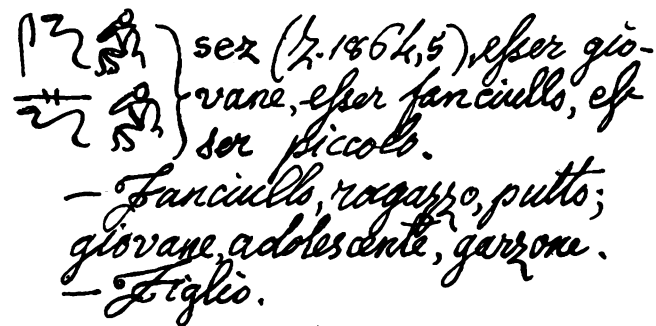 sez (Z. 1864,5), esser gio-
vane, esser fanciullo, es-
ser piccolo.
— Fanciullo, ragazzo, putto;
giovane, adolescente, garzone.
— Figlio.